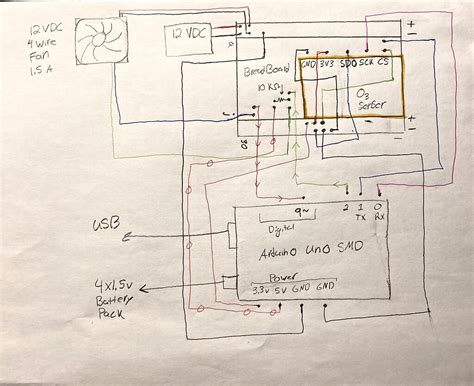 12 VDC
4 wire
Fan
1.5 A
12 VDC
+
-
GND 3V3 SDO SCK CS
BreadBoard
10 KΩ
O3
Sensor
-
+
-
+
9~
2 1 0
TX RX
Digital
USB
Arduino Uno SMD
4x1.5v
Battery
Pack
Power
3.3v 5V GND GND